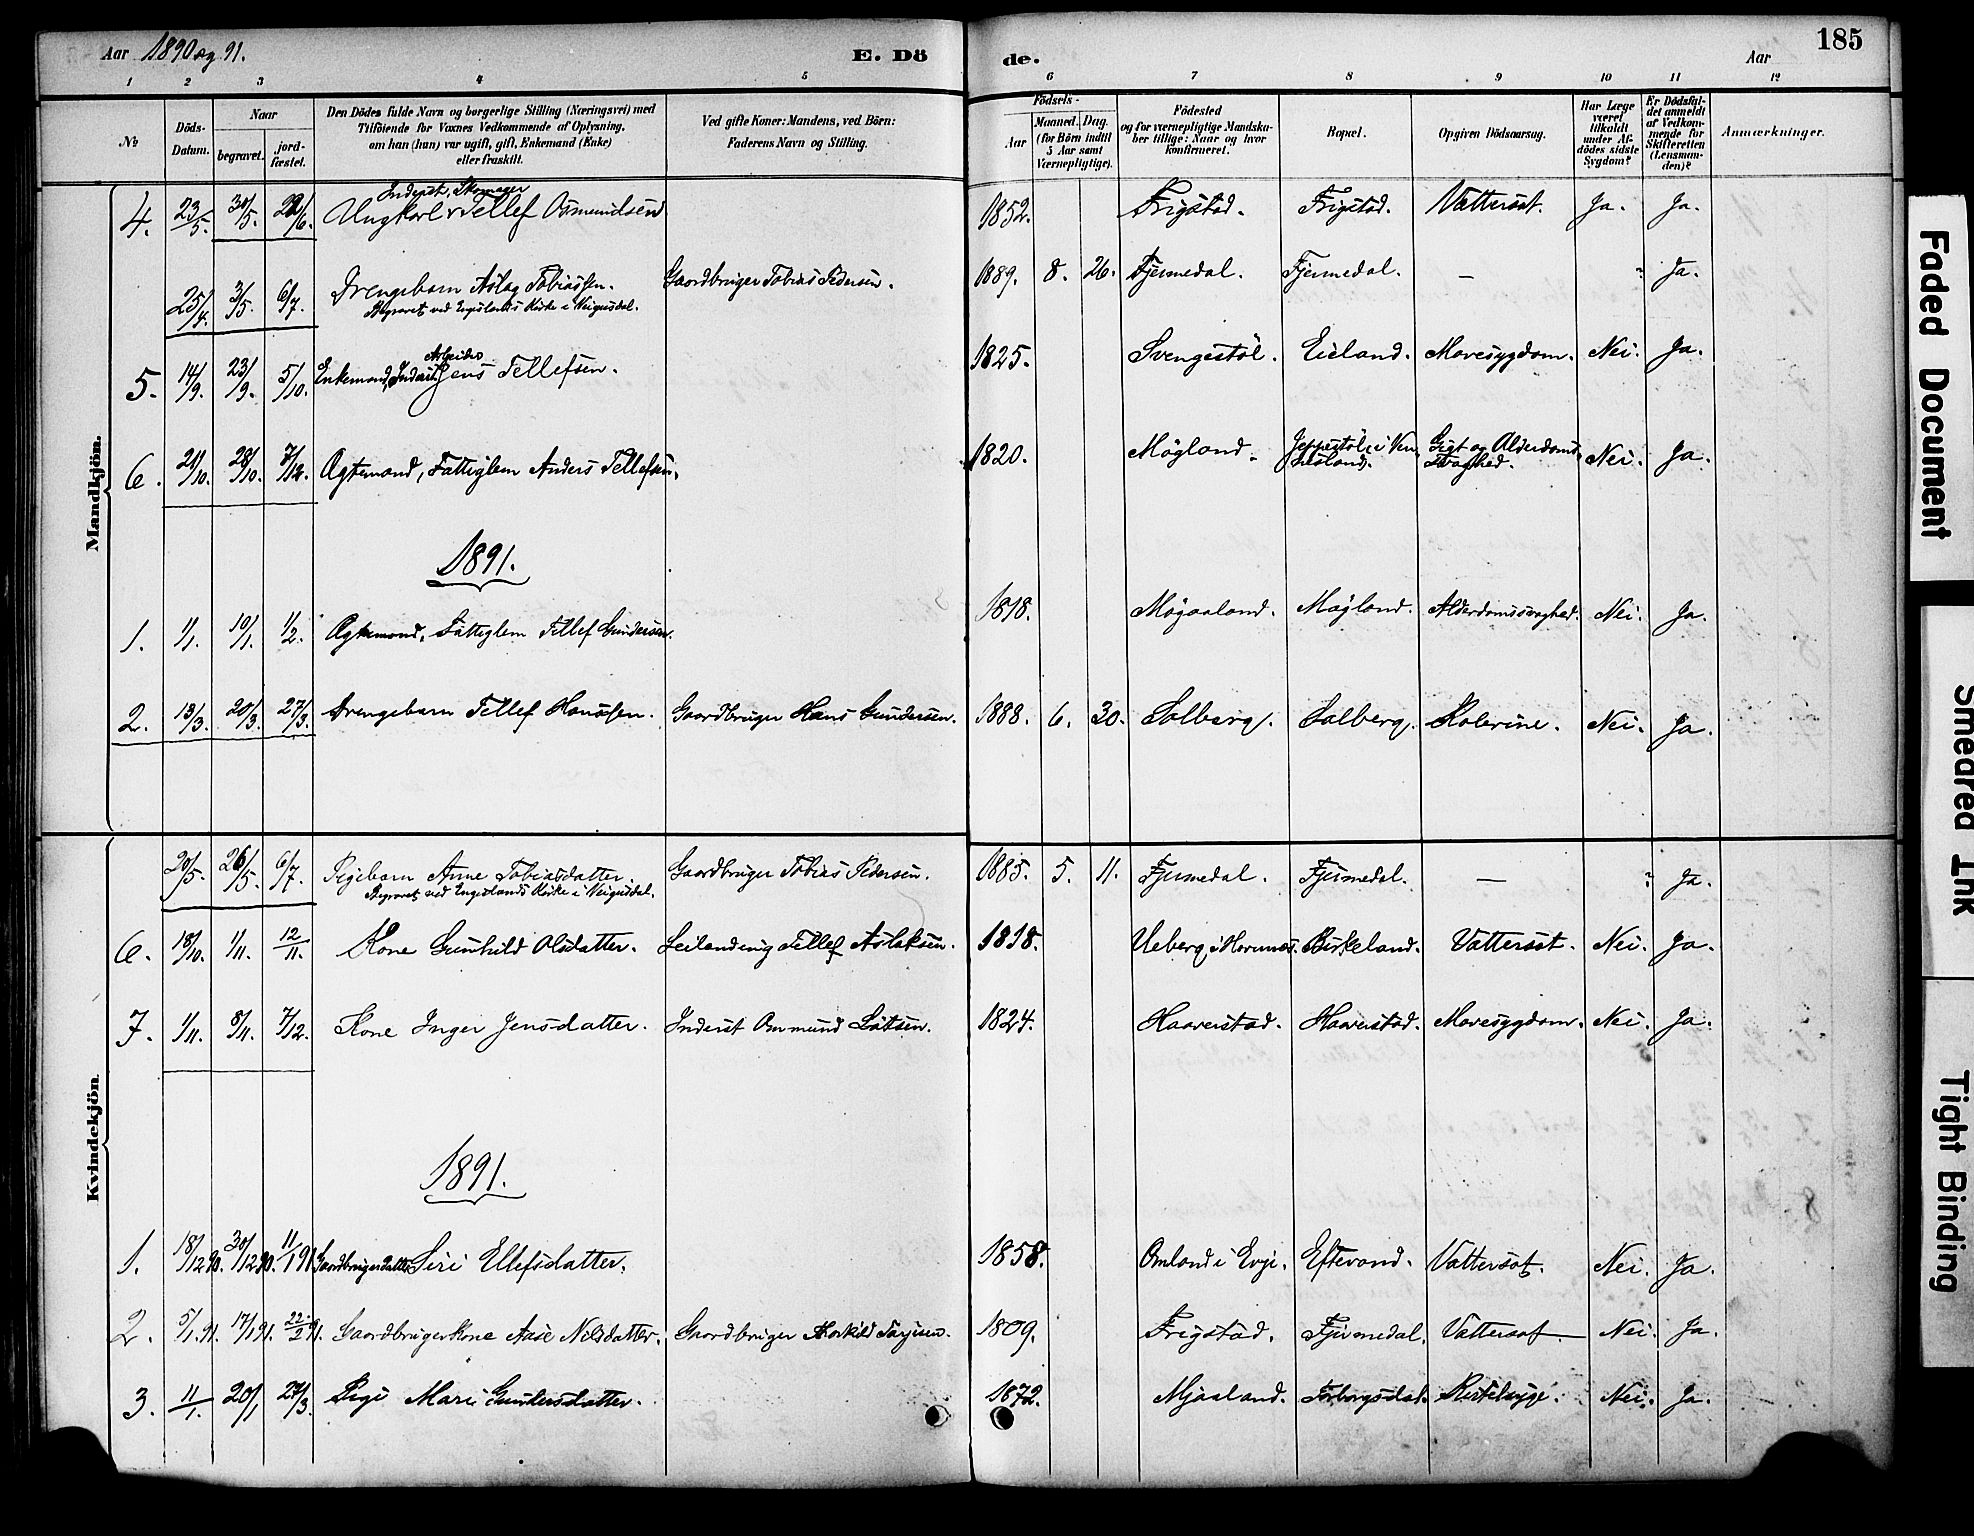 Aar 1890 og 91. E. Dö de. Aar 185
1 2 3 4 5 6 7 8 9 10 11 12
No
Döds-Datum.
Naar
begravet.
jord-fæstet.
Den Dödes fulde Navn og borgerlige Stilling (Næringsvei) med
Tilföiende for Voxnes Vedkommende af Oplysning,
om han (hun) var ugift, gift, Enkemand (Enke)
eller fraskilt.
Ved gifte Koner: Mandens, ved Börn:
Faderens Navn og Stilling.
Födsels-
Aar
Maaned. Dag.
(for Börn indtil
5 Aar samt
Værnepligtige).
Födested
og for værnepligtige Mandska-
ber tillige: Naar og hvor
konfirmeret.
Bopæl.
Opgiven Dödsaarsag.
Har Læge
været
tilkaldt
under Af-
dödes sidste
Sygdom?
Er Dödsfal-
det anmeldt
af Vedkom-
mende for
Skifteretten
(Lensman-
den)?
Anmærkninger.
Mandkjön.
Inderst, Skomager
4. 23/5. 30/5. 22/6. Ungkarl Tellef Osmundsen 1852. Frigstad. Frigstad. Vattersot. Ja. Ja.
25/4. 3/5. 6/7. Drengebarn Aslag Tobiassen. Gaardbruger Tobias Pedersen. 1889. 8. 26. Fjermedal. Fjermedal. — ? Ja.
Begravet ved Engeslands Kirke i Veigusdal.
Arbeider
5. 14/9. 23/9. 5/10. Enkemand, Inderst Jens Tellefsen. 1825. Svengestöl. Eieland. Mavesygdom. Nei. Ja.
6. 21/10. 28/10. 7/12. Ægtemand, Fattiglem Anders Tellefsen. 1820. Mögland. Jeppestöl i Ven- Gigt og Alderdoms- Nei. Ja.
nesland. svaghed.
1891.
1. 1/1. 10/1. 1/2. Ægtemand, Fattiglem Tellef Gundersen. 1818. Mögaaland. Mögland. Alderdomssvaghed. Nei. Ja.
2. 13/3. 20/3. 27/3. Drengebarn Tellef Hanssen. Gaardbruger Hans Gundersen. 1888. 6. 30. Solberg. Solberg. Kolerine. Nei. Ja.
Kvindekjön.
20/5. 26/5. 6/7. Pigebarn Anne Tobiasdatter. Gaardbruger Tobias Pedersen. 1885. 5. 11. Fjermedal. Fjermedal. — ? Ja.
Begravet ved Engeslands Kirke i Veigusdal.
6. 18/10. 1/11. 12/11. Kone Gunhild Olsdatter. Leilending Tellef Aslaksen. 1818. Ueberg i Hornnes. Birkeland. Vattersot. Nei. Ja.
7. 1/11. 8/11. 7/12. Kone Inger Jensdatter. Inderst Ommund Salvesen. 1824. Haaverstad. Haaverstad. Mavesygdom. Nei. Ja.
1891.
1. 18/12 90. 30/12 90. 11/1 91. Gaardbrugerdatter Siri Ellefsdatter. 1858. Omland i Evje. Eftevand. Vattersot. Nei. Ja.
2. 5/1. 91. 17/1 91. 22/2 91. Gaardbrugerkone Aase Nilsdatter. Gaardbruger Torkild Tarjesen. 1809. Frigstad. Fjermedal. Vattersot. Nei. Ja.
3. 11/1. 20/1 27/3. Pige Mari Gundersdatter. 1872. Mjaaland. Kirtelsyge. Nei. Ja.
Faded Document
Smeared Ink
Tight Binding